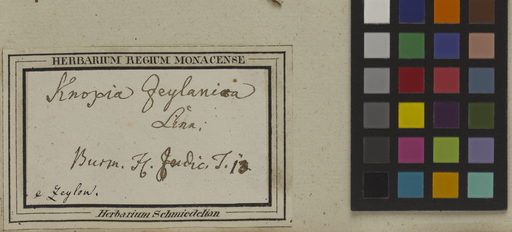 HERBARIUM REGIUM MONACENSE
Knoxia Zeylanica
Linn.
Burm. Fl. Indic. T. 13
e Zeylon.
Herbarium Schmiedelian